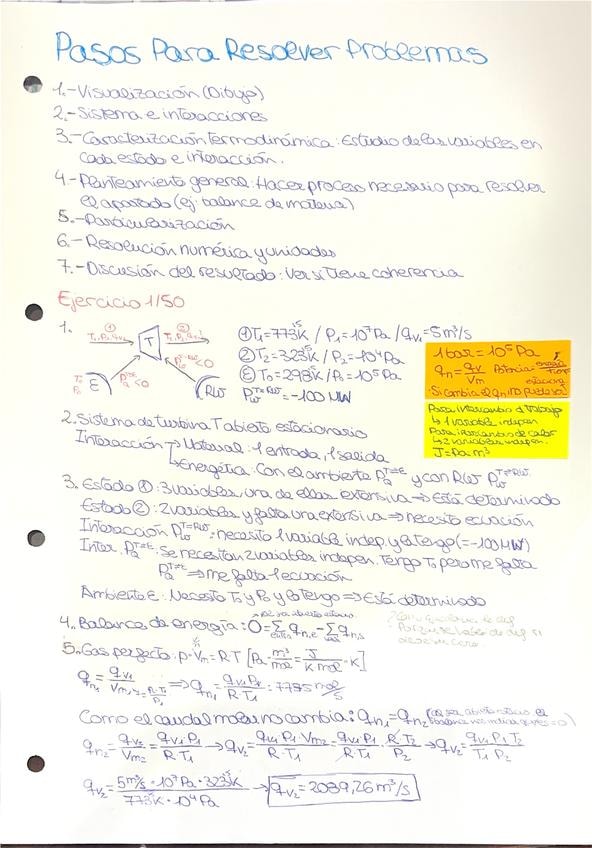 Pasos Para Resolver Problemas
1.-Visualización (Dibujo)
2.-Sistema e interacciones
3.-Caracterización termodinámica: Estudio de las variables en
cada estado e interacción.
4.-Planteamiento general: Hacer proceso necesario para resolver
el apartado (ej: balance de materia)
5.-Particularización
6.-Resolución numérica y unidades
7.-Discusión del resultado: Ver si tiene coherencia
Ejercicio 1/50
1.
① T
② E RW
① T₁=773K / P₁=10⁷Pa / qv₁=5m³/s
② T₂=323K / P₂=10⁴Pa
Ⓔ T₀=298K / P₀=10⁵Pa
P_W^{T≡RW}=-100 MW
1bar=10⁵Pa
qn=qv/Vm Potencia=
Si cambia el qn no puede ser
Para intercambios de Trabajo
↳1 variable indepen.
Para intercambios de calor
↳2 variables indepen.
J=Pa·m³
2. Sistema de turbina T abierto estacionario
Interacción → Material: 1 entrada, 1 salida
↳Energética: Con el ambiente P_Q^{T≡E} y con RW P_W^{T≡RW}
3. Estado ①: 3 variables, una de ellas extensiva ⇒ Está determinado
Estado ②: 2 variables y falta una extensiva ⇒ necesito ecuación
Interacción P_W^{T≡RW}: necesito 1 variable indep. y la tengo (=-100MW)
Inter. P_Q^{T≡E}: Se necesitan 2 variables indepen. Tengo T₀ pero me falta
P_Q^{T≡E} ⇒ me falta 1 ecuación
Ambiente E: Necesito T₀ y P₀ y lo tengo ⇒ Está determinado
4. Balance de energía: 0=Σ qn,e - Σ qn,s
5. Gas perfecto: P·Vm=R·T [Pa·m³/mol = J/K mol · K]
qn₁=qv₁/Vm,₁=R·T₁/P₁ ⇒ qn₁=qv₁P₁/R T₁=7785 mol/s
Como el caudal molar no cambia: qn₁=qn₂
qn₂=qv₂/Vm₂=qv₁·P₁/R·T₁ → qv₂=qv₁ P₁·Vm₂/R·T₁=qv₁·P₁/R·T₁·R·T₂/P₂ → qv₂=qv₁ P₁ T₂/T₁ P₂
qv₂=5m³/s·10⁷Pa·323K/773K·10⁴Pa → qv₂=2089,26 m³/s